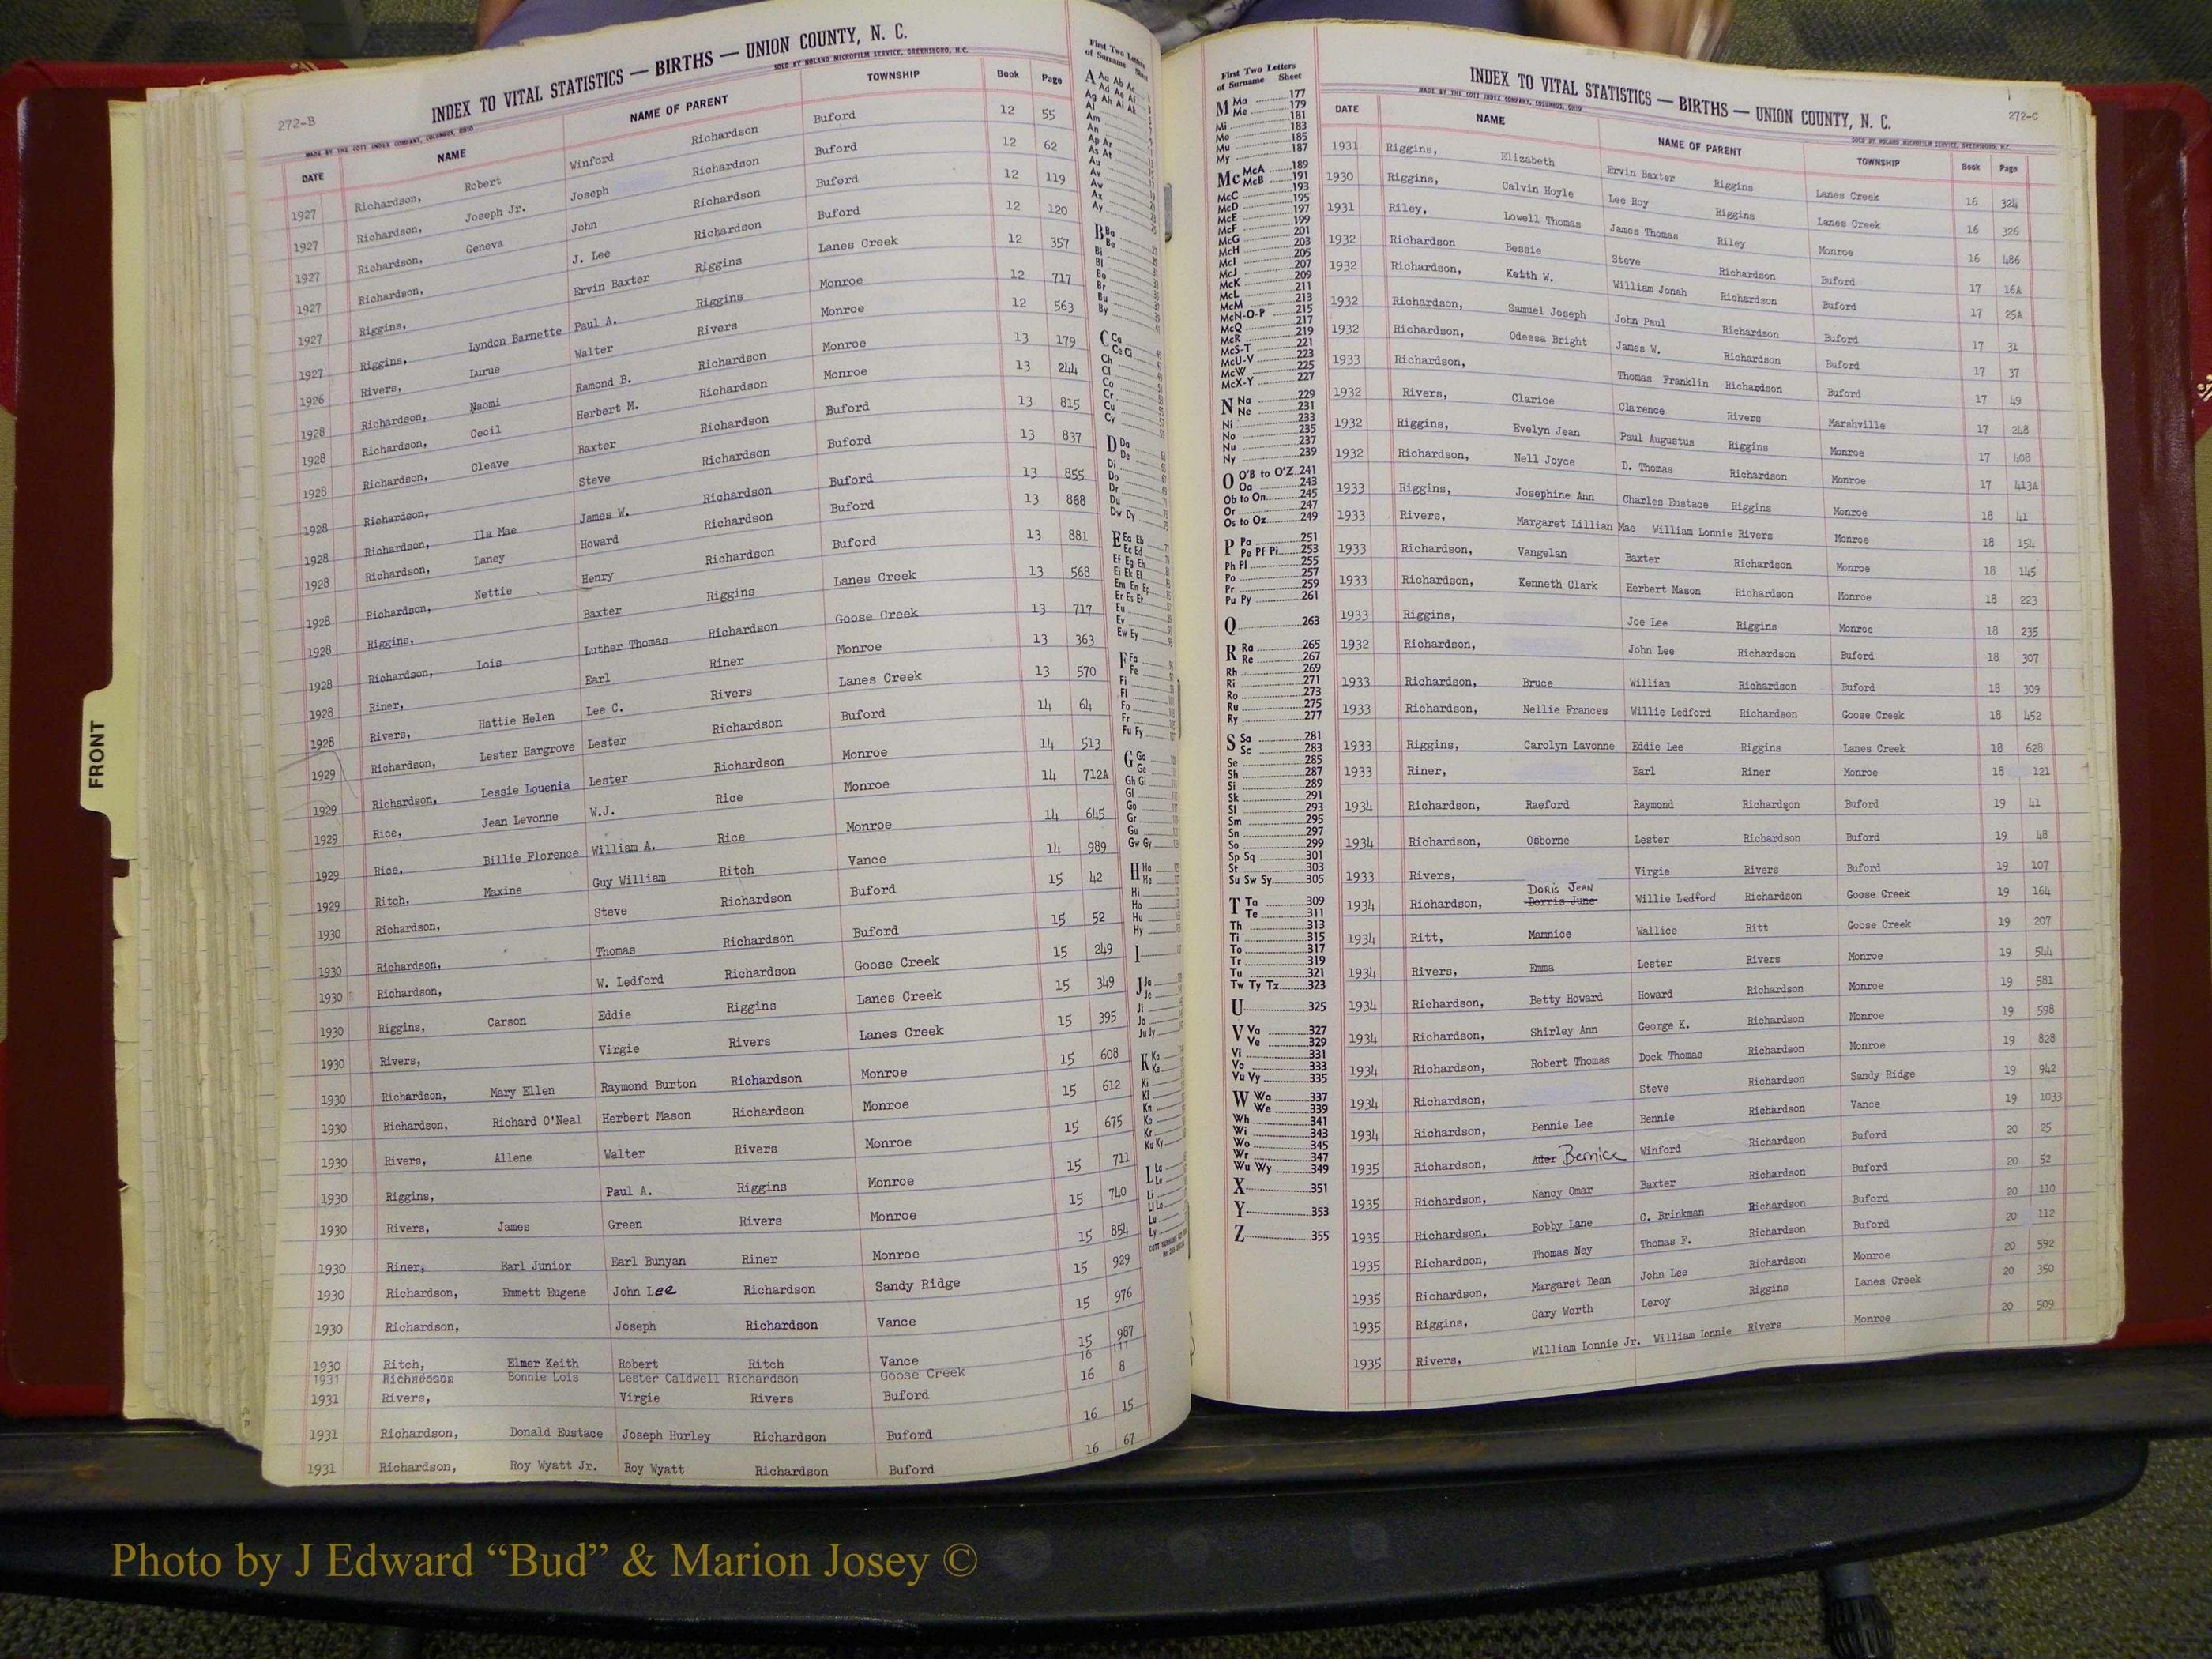 272-B
INDEX TO VITAL STATISTICS — BIRTHS — UNION COUNTY, N. C.
MADE BY THE COTT INDEX COMPANY, COLUMBUS, OHIO SOLD BY NOLAND MICROFILM SERVICE, GREENSBORO, N.C.
DATE NAME NAME OF PARENT TOWNSHIP Book Page
1927 Richardson, Robert Winford Richardson Buford 12 55
1927 Richardson, Joseph Jr. Joseph Richardson Buford 12 62
1927 Richardson, Geneva John Richardson Buford 12 119
1927 Richardson, J. Lee Richardson Buford 12 120
1927 Riggins, Ervin Baxter Riggins Lanes Creek 12 357
1927 Riggins, Lyndon Barnette Paul A. Riggins Monroe 12 717
1926 Rivers, Lurue Walter Rivers Monroe 12 563
1928 Richardson, Naomi Ramond B. Richardson Monroe 13 179
1928 Richardson, Cecil Herbert M. Richardson Monroe 13 244
1928 Richardson, Cleave Baxter Richardson Buford 13 815
1928 Richardson, Steve Richardson Buford 13 837
1928 Richardson, Ila Mae James W. Richardson Buford 13 855
1928 Richardson, Laney Howard Richardson Buford 13 868
1928 Richardson, Nettie Henry Richardson Buford 13 881
1928 Riggins, Baxter Riggins Lanes Creek 13 568
1928 Richardson, Lois Luther Thomas Richardson Goose Creek 13 717
1928 Riner, Earl Riner Monroe 13 363
1928 Rivers, Hattie Helen Lee C. Rivers Lanes Creek 13 570
1929 Richardson, Lester Hargrove Lester Richardson Buford 14 64
1929 Richardson, Lessie Louenia Lester Richardson Monroe 14 513
1929 Rice, Jean Levonne W.J. Rice Monroe 14 712A
1929 Rice, Billie Florence William A. Rice Monroe 14 645
1929 Ritch, Maxine Guy William Ritch Vance 14 989
1930 Richardson, Steve Richardson Buford 15 42
1930 Richardson, Thomas Richardson Buford 15 52
1930 Richardson, W. Ledford Richardson Goose Creek 15 249
1930 Riggins, Carson Eddie Riggins Lanes Creek 15 349
1930 Rivers, Virgie Rivers Lanes Creek 15 395
1930 Richardson, Mary Ellen Raymond Burton Richardson Monroe 15 608
1930 Richardson, Richard O'Neal Herbert Mason Richardson Monroe 15 612
1930 Rivers, Allene Walter Rivers Monroe 15 675
1930 Riggins, Paul A. Riggins Monroe 15 711
1930 Rivers, James Green Rivers Monroe 15 740
1930 Riner, Earl Junior Earl Bunyan Riner Monroe 15 854
1930 Richardson, Emmett Eugene John Lee Richardson Sandy Ridge 15 929
1930 Richardson, Joseph Richardson Vance 15 976
1930 Ritch, Elmer Keith Robert Ritch Vance 15 987
1931 Richardson Bonnie Lois Lester Caldwell Richardson Goose Creek 16 111
1931 Rivers, Virgie Rivers Buford 16 8
1931 Richardson, Donald Eustace Joseph Hurley Richardson Buford 16 15
1931 Richardson, Roy Wyatt Jr. Roy Wyatt Richardson Buford 16 67
FRONT
First Two Letters
of Surname Sheet
A Aa Ab Ac
Ad Ae Af
Ag Ah Ai Ak
Al
Am
An
Ap Ar
As At
Au
Av
Aw
Ax
Ay
B Ba
Be
Bi
Bl
Bo
Br
Bu
By
C Ca
Ce Ci
Ch
Cl
Co
Cr
Cu
Cy
D Da
De
Di
Do
Dr
Du
Dw Dy
E Ea Eb
Ec Ed
Ef Eg Eh
Ei Ek El
Em En Ep
Er Es Et
Eu
Ev
Ew Ey
F Fa
Fe
Fi
Fl
Fo
Fr
Fu Fy
G Ga
Ge
Gh Gi
Gl
Go
Gr
Gu
Gw Gy
H Ha
He
Hi
Ho
Hu
Hy
I
J Ja
Je
Ji
Jo
Ju Jy
K Ka
Ke
Ki
Kl
Kn
Ko
Kr
Ku Ky
L La
Le
Li
Ll Lo
Lu
Ly
First Two Letters
of Surname Sheet
M Ma 177
Me 179
Mi 181
Mo 183
Mu 185
My 187
Mc McA 189
McB 191
McC 193
McD 195
McE 197
McF 199
McG 201
McH 203
McI 205
McJ 207
McK 209
McL 211
McM 213
McN-O-P 215
McQ 217
McR 219
McS-T 221
McU-V 223
McW 225
McX-Y 227
N Na 229
Ne 231
Ni 233
No 235
Nu 237
Ny 239
O O'B to O'Z 241
Oa 243
Ob to On 245
Or 247
Os to Oz 249
P Pa 251
Pe Pf Pi 253
Ph Pl 255
Po 257
Pr 259
Pu Py 261
Q 263
R Ra 265
Re 267
Rh 269
Ri 271
Ro 273
Ru 275
Ry 277
S Sa 281
Sc 283
Se 285
Sh 287
Si 289
Sk 291
Sl 293
Sm 295
Sn 297
So 299
Sp Sq 301
St 303
Su Sw Sy 305
T Ta 309
Te 311
Th 313
Ti 315
To 317
Tr 319
Tu 321
Tw Ty Tz 323
U 325
V Va 327
Ve 329
Vi 331
Vo 333
Vu Vy 335
W Wa 337
We 339
Wh 341
Wi 343
Wo 345
Wr 347
Wu Wy 349
X 351
Y 353
Z 355
272-C
INDEX TO VITAL STATISTICS — BIRTHS — UNION COUNTY, N. C.
MADE BY THE COTT INDEX COMPANY, COLUMBUS, OHIO SOLD BY NOLAND MICROFILM SERVICE, GREENSBORO, N.C.
DATE NAME NAME OF PARENT TOWNSHIP Book Page
1931 Riggins, Elizabeth Ervin Baxter Riggins Lanes Creek 16 324
1930 Riggins, Calvin Hoyle Lee Roy Riggins Lanes Creek 16 326
1931 Riley, Lowell Thomas James Thomas Riley Monroe 16 486
1932 Richardson Bessie Steve Richardson Buford 17 16A
1932 Richardson, Keith W. William Jonah Richardson Buford 17 25A
1932 Richardson, Samuel Joseph John Paul Richardson Buford 17 31
1932 Richardson, Odessa Bright James W. Richardson Buford 17 37
1933 Richardson, Thomas Franklin Richardson Buford 17 49
1932 Rivers, Clarice Clarence Rivers Marshville 17 248
1932 Riggins, Evelyn Jean Paul Augustus Riggins Monroe 17 408
1932 Richardson, Nell Joyce D. Thomas Richardson Monroe 17 413A
1933 Riggins, Josephine Ann Charles Eustace Riggins Monroe 18 41
1933 Rivers, Margaret Lillian Mae William Lonnie Rivers Monroe 18 154
1933 Richardson, Vangelan Baxter Richardson Monroe 18 145
1933 Richardson, Kenneth Clark Herbert Mason Richardson Monroe 18 223
1933 Riggins, Joe Lee Riggins Monroe 18 235
1932 Richardson, John Lee Richardson Buford 18 307
1933 Richardson, Bruce William Richardson Buford 18 309
1933 Richardson, Nellie Frances Willie Ledford Richardson Goose Creek 18 452
1933 Riggins, Carolyn Lavonne Eddie Lee Riggins Lanes Creek 18 628
1933 Riner, Earl Riner Monroe 18 121
1934 Richardson, Raeford Raymond Richardson Buford 19 41
1934 Richardson, Osborne Lester Richardson Buford 19 48
1933 Rivers, Virgie Rivers Buford 19 107
Doris Jean
1934 Richardson, Dorris June Willie Ledford Richardson Goose Creek 19 164
1934 Ritt, Mamnice Wallice Ritt Goose Creek 19 207
1934 Rivers, Emma Lester Rivers Monroe 19 544
1934 Richardson, Betty Howard Howard Richardson Monroe 19 581
1934 Richardson, Shirley Ann George K. Richardson Monroe 19 598
1934 Richardson, Robert Thomas Dock Thomas Richardson Monroe 19 828
1934 Richardson, Steve Richardson Sandy Ridge 19 942
1934 Richardson, Bennie Lee Bennie Richardson Vance 19 1033
1935 Richardson, Bernice Winford Richardson Buford 20 25
1935 Richardson, Nancy Omar Baxter Richardson Buford 20 52
1935 Richardson, Bobby Lane C. Brinkman Richardson Buford 20 110
1935 Richardson, Thomas Ney Thomas F. Richardson Buford 20 112
1935 Richardson, Margaret Dean John Lee Richardson Monroe 20 592
1935 Riggins, Gary Worth Leroy Riggins Lanes Creek 20 350
1935 Rivers, William Lonnie Jr. William Lonnie Rivers Monroe 20 509
Photo by J Edward “Bud” & Marion Josey ©